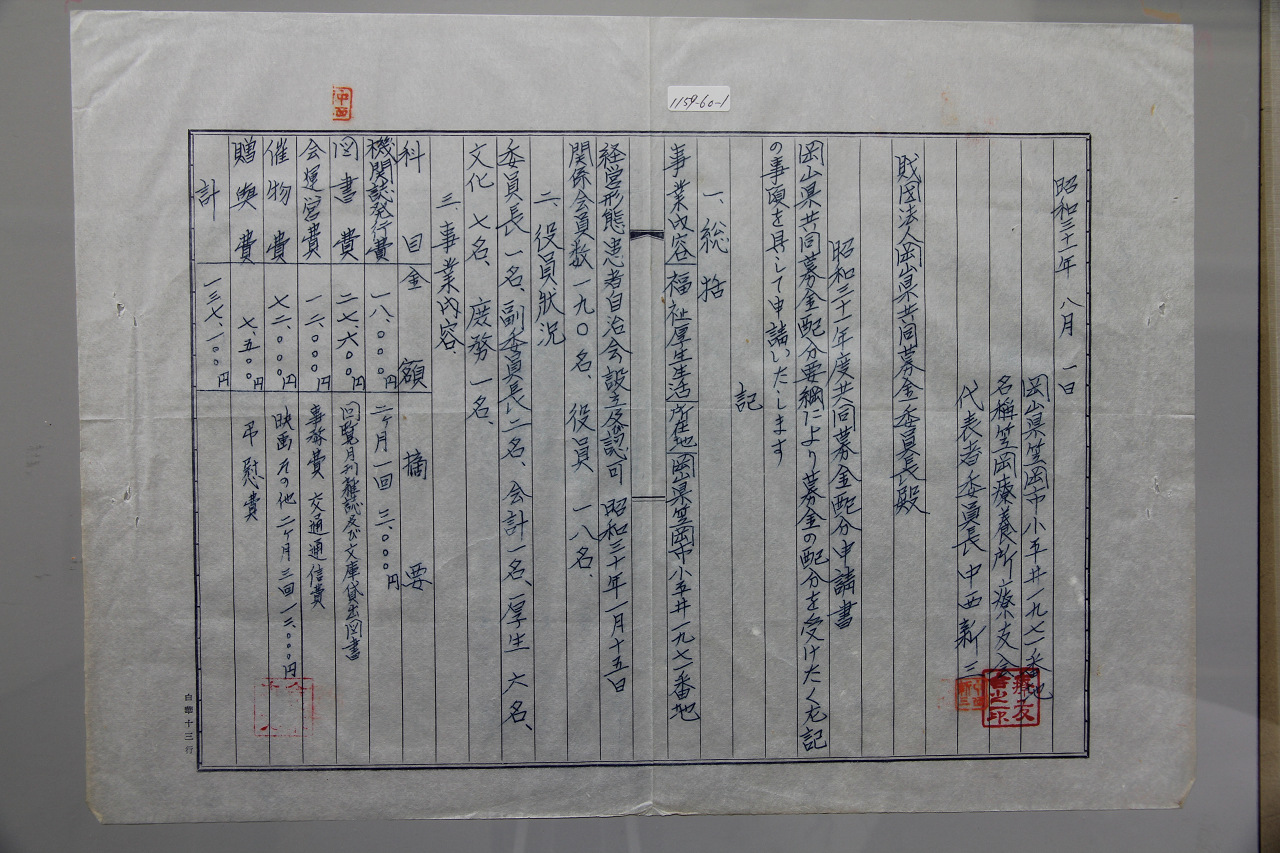 1159-60-1
中西
昭和三十一年 八月 一日
岡山県笠岡市小平井一九七一番地
名称笠岡療養所療友会
代表者委員長中西新三
療友会之印
財団法人岡山県共同募金委員長殿
昭和三十一年度共同募金配分申請書
岡山県共同募金配分要綱により募金の配分を受けたく左記
の事項を具して申請いたします
記
一、総括
事業内容 福祉厚生生活 所在地 岡山県笠岡市小平井一九七一番地
経営形態患者自治会設立及認可 昭和三十年一月十五日
関係会員数一九〇名、役員 一八名、
二、役員状況
委員長 一名、副委員長 二名、会計一名、厚生 六名、
文化 七名、庶務 一名、
三、事業内容、
科目 金額 摘要
機関誌発行費 一八、〇〇〇円 二ヶ月一回 三、〇〇〇円
図書費 二七、六〇〇円 回覧月刊雑誌及び文庫貸出図書
会運営費 一二、〇〇〇円 事務費 交通通信費
催物費 七二、〇〇〇円 映画その他二ヶ月三回 一二、〇〇〇円
贈與費 七、五〇〇円 弔慰費
計 一三七、一〇〇円
白華十三行